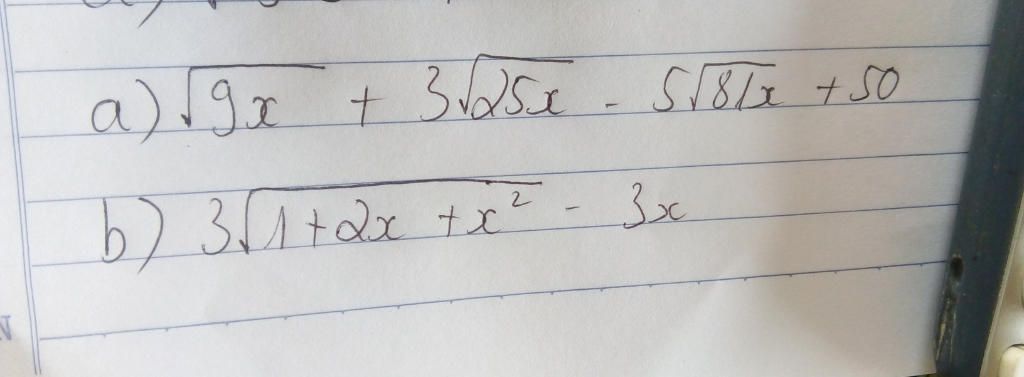 a) √9x + 3√25x - 5√81x + 50
b) 3√1+2x +x² - 3x
N